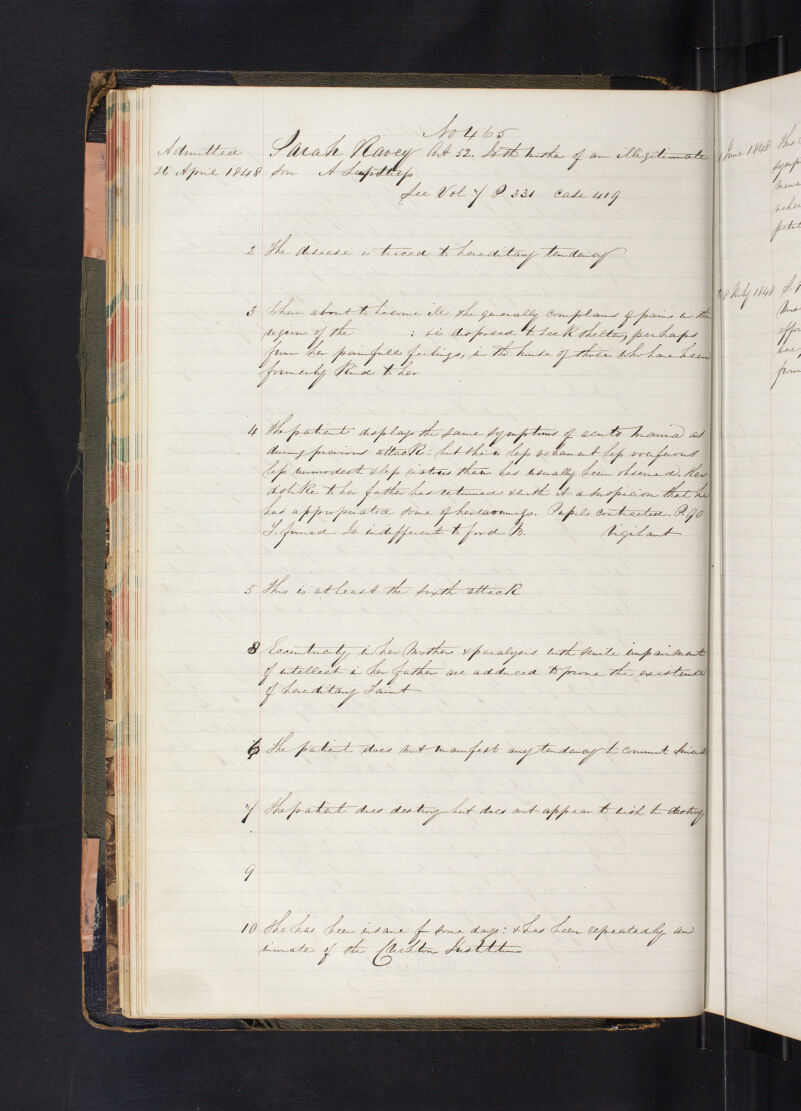 No 465
Admitted Sarah Aet 52. Is the mother of an illegitimate
26 April 1848 son A
See Vol 7 P 331 case 419
2 The disease is traced to hereditary tendency
3 When about to become ill she generally complains of pain in the
region of the : & is disposed to seek shelter, perhaps
from her painfull feelings, in the house of those who have been
formerly kind to her
4 The patient displays the same symptoms of acute mania as
during previous attacks: but she is less vehement less vociferous
less immodest & less than has usually been observed. Her
dislike to her father has returned & with it a suspicion that he
has appropriated some of her savings. Pupils contracted. P. 90
T. furred. Is indifferent to food B. Vigilant
5 This is at least the sixth attack
8 Eccentricity in her Mother & paralysis with senile impairment
of intellect in her father are adduced to prove the existence
of hereditary taint
6 The patient does not manifest any tendency to commit Suicide
7 The patient does destroy but does not appear to wish to destroy
9
10 She has been insane for some days: & has been repeatedly an
inmate of the Crichton Institution
1 June 1848 This
28 July 1848